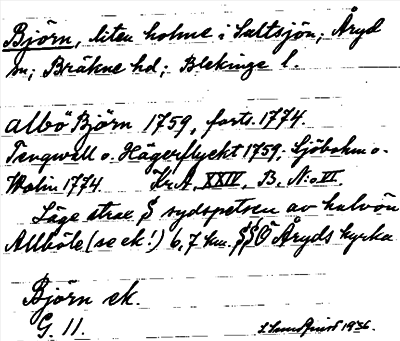 Björn, liten holme i Saltsjön; Åryd
sn; Bräkne hd; Blekinge l.
albö Björn 1759, forts. 1774.
Tengwall o. Hägerflyckt 1759; Sjöbohm o.
Wolin 1774. Kr.A. XXIV, B, N:o VI.
Läge strax S sydspetsen av halvön
Allböle (se ek!) 6,7 km. SSÖ Åryds kyrka
Björn ek.
G. 11.
1936.